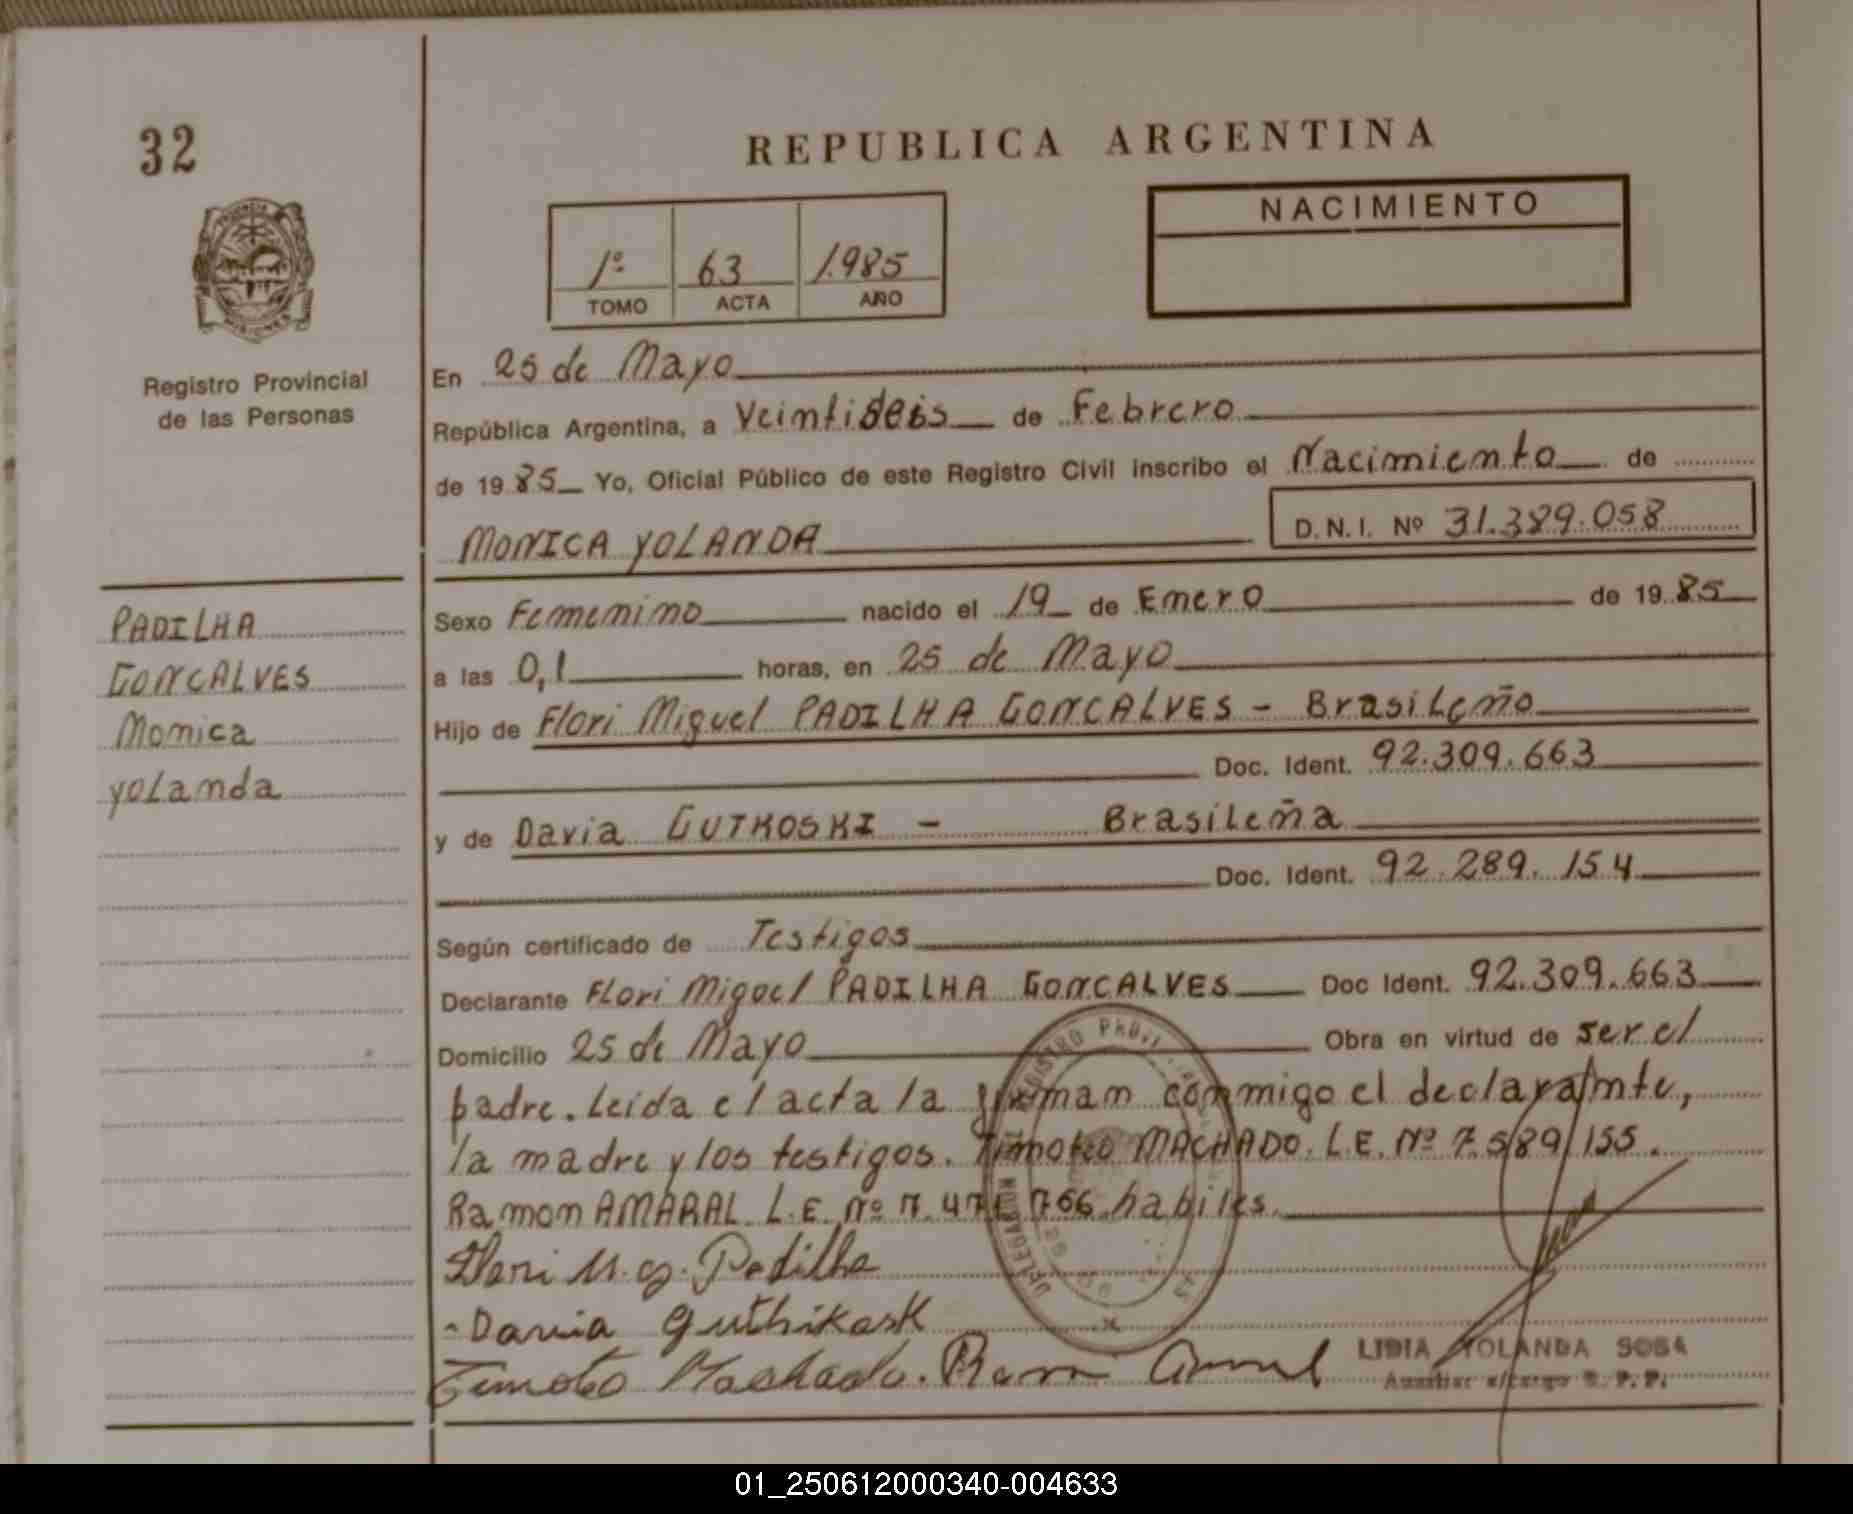 32
REPUBLICA ARGENTINA
PROVINCIA
MISIONES
Registro Provincial
de las Personas
1º 63 1.985
TOMO ACTA AÑO
NACIMIENTO
En 25 de Mayo
República Argentina, a Veintideis de Febrero
de 19 85 Yo, Oficial Público de este Registro Civil inscribo el Nacimiento de
MONICA YOLANDA D.N.I. Nº 31.389.058
PADILHA
GONCALVES
Monica
yolanda
Sexo Femenino nacido el 19 de Enero de 19 85
a las 0,1 horas, en 25 de Mayo
Hijo de Flori Miguel PADILHA GONCALVES - Brasileño
Doc. Ident. 92.309.663
y de Davia GUTKOSKI - Brasileña
Doc. Ident. 92.289.154
Según certificado de Testigos
Declarante Flori Miguel PADILHA GONCALVES Doc Ident. 92.309.663
Domicilio 25 de Mayo Obra en virtud de ser el
padre. Leida el acta la firman conmigo el declarante,
la madre y los testigos. Timoteo MACHADO. L.E. Nº 7.589.155.
Ramon AMARAL L.E. Nº 7.471.766 habiles.
Flori M. g. Padilha
Davia Guthikosk
Timoteo Machado. Ramon
LIDIA YOLANDA SOSA
Auxiliar a/cargo R. P. P.
01_250612000340-004633